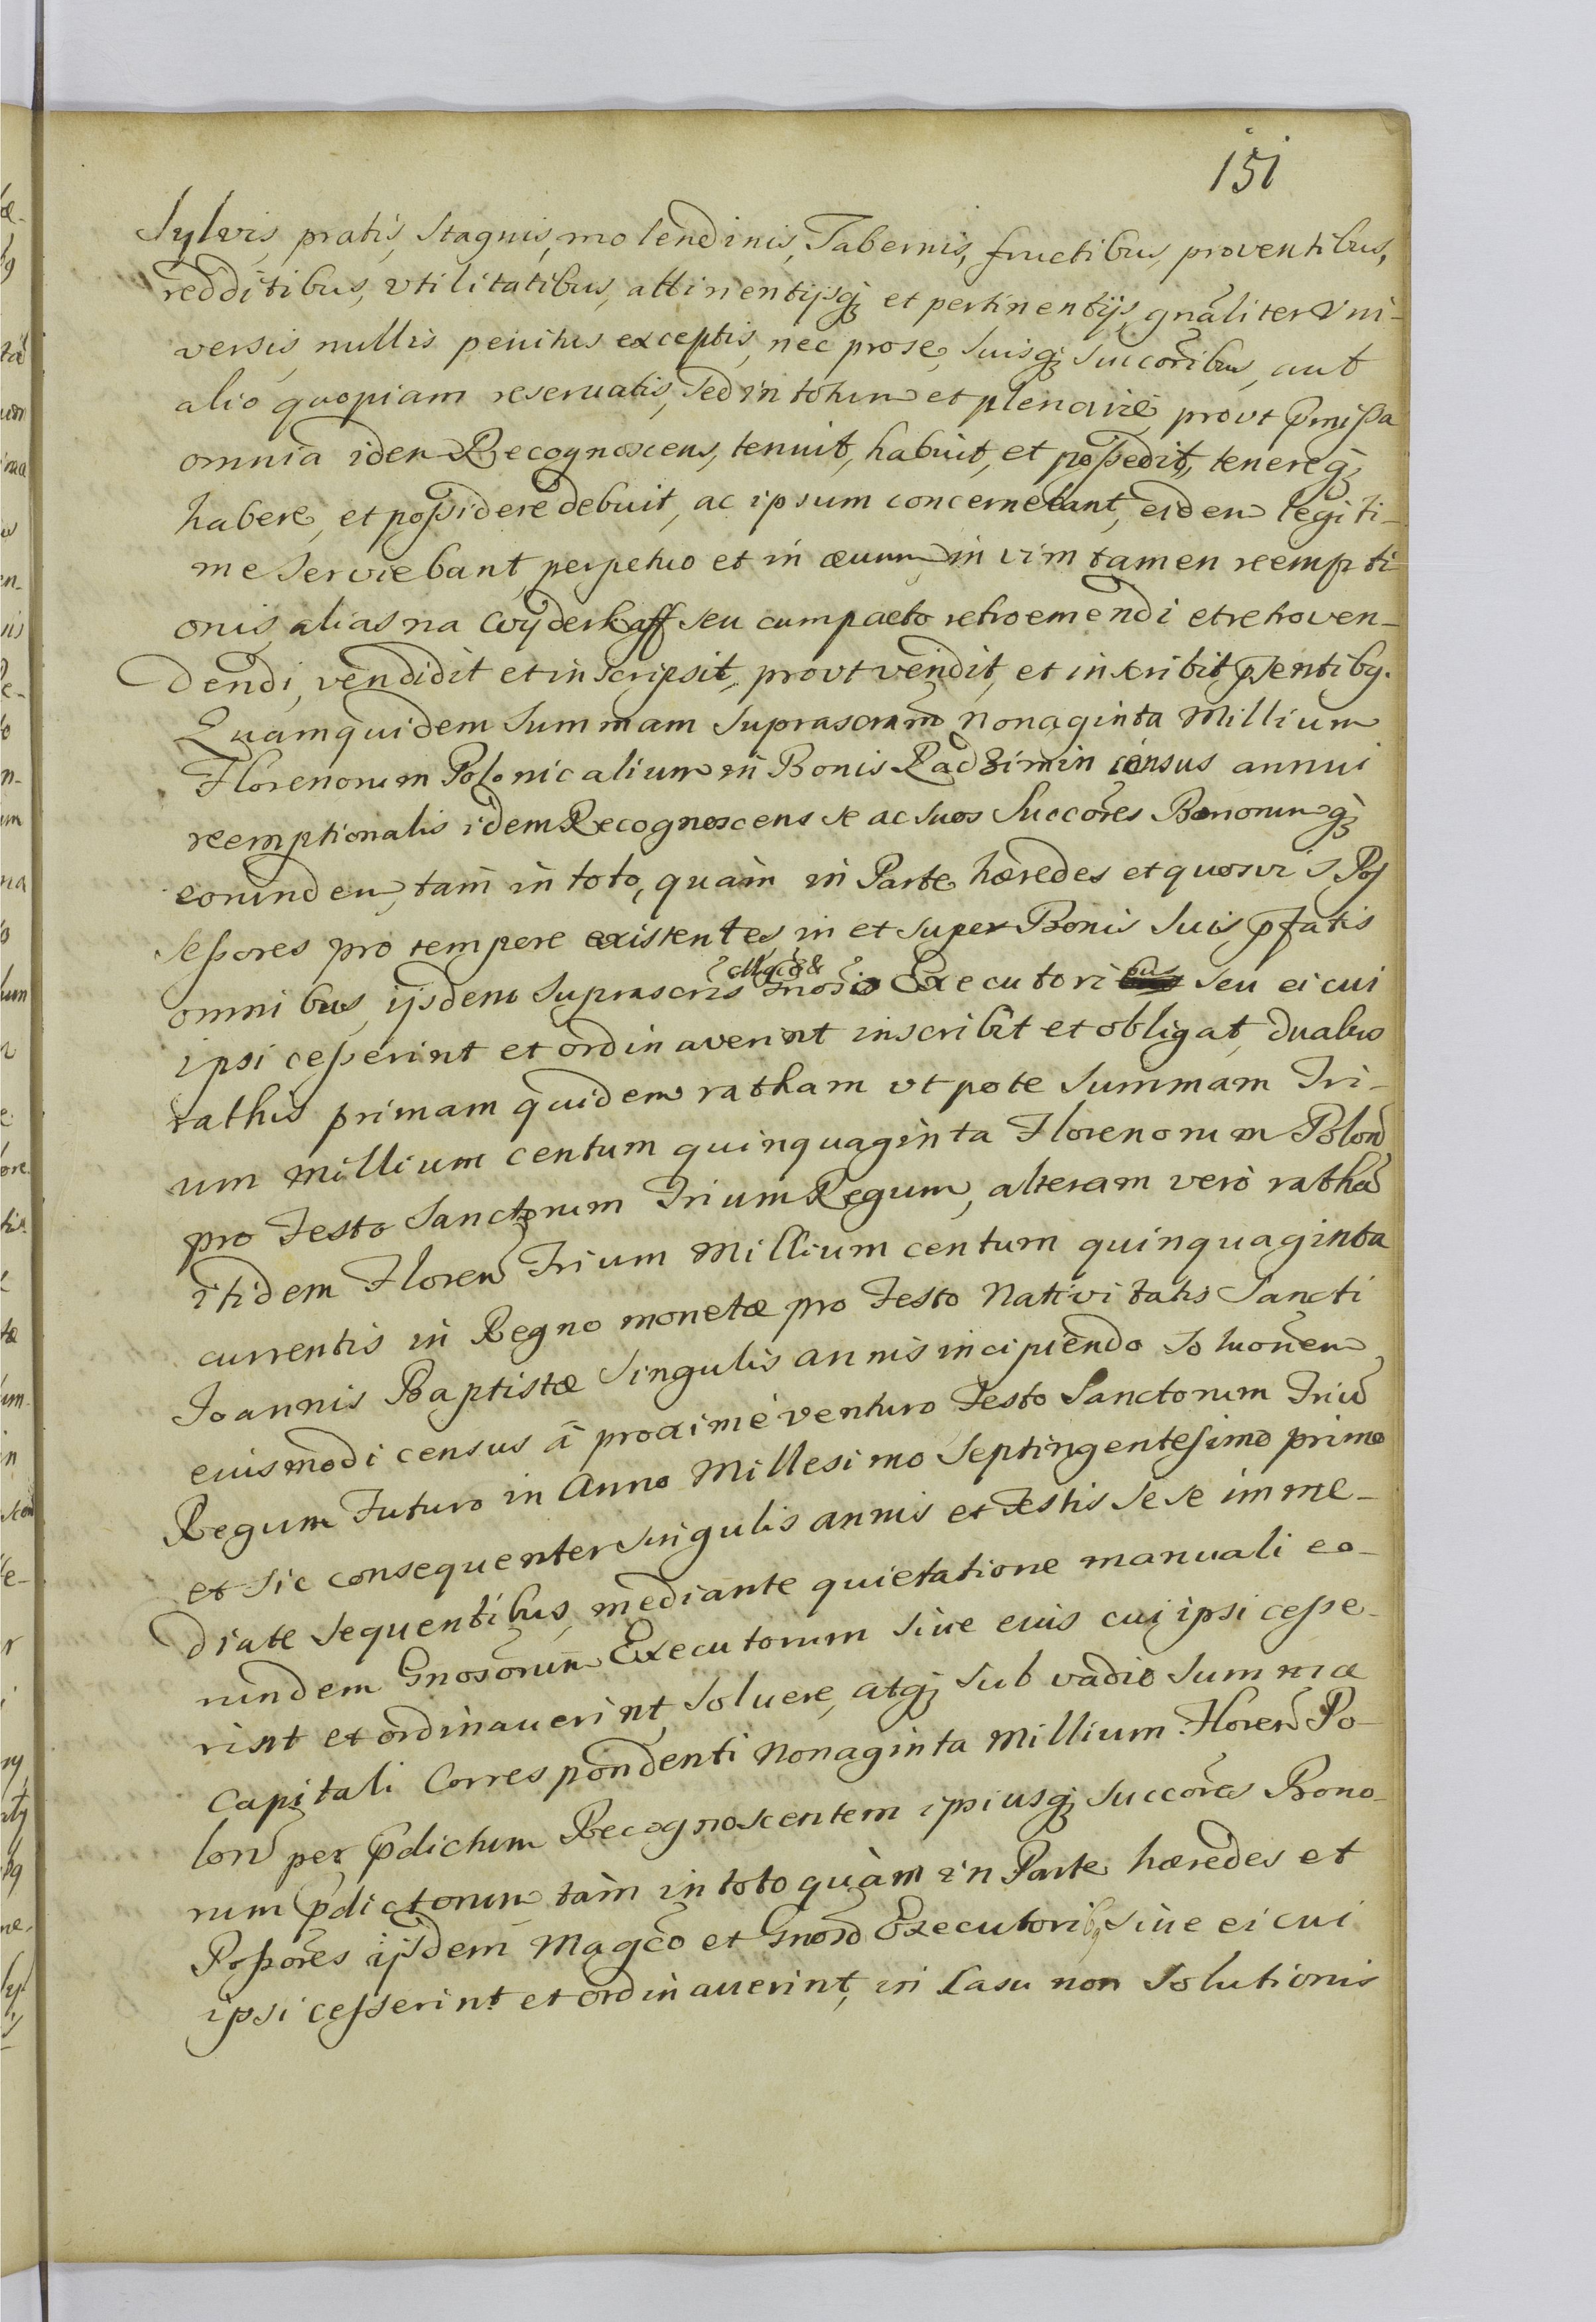 151
Sylvis, pratis, Stagnis, molendinis, Tabernis, fructibus, proventibus,
redditibus, vtilitatibus, attinentijsq; et pertinentijs, gnãliter Vni-
versis, nullis penitus exceptis, nec prose, Suisq; Succõribus, aut
alio quopiam reservatis, Sed in totum et plenariè, provt p̃mißa
omnia idem Recognoscens, tenuit, habuit, et poßedit, tenereq;
habere, et poßidere debuit, ac ipsum concernebant, eidem legiti-
me Serviebant, perpetuo et in ævum, in vim tamen reempti-
onis alias na Wyderkaff seu cum pacto retroemendi et retroven-
dendi, vendidit et inscripsit, provt vendit, et inscribit p̃sentibq.
Quamquidem Summam Suprascriptam Nonaginta Millium
Florenorum Polonicalium in Bonis Radzimin census annui
reemptionalis idem Recognoscens se ac Suos Succõres Bonorumq;
eorundem, tam in toto, quàm in Parte hæredes et quosvis Pos
seßores pro tempore existentes, in et super Bonis Suis p̃fatis
omnibus, ijsdem Suprascr̃is Mg̃co & Gnoso Executoribus seu ei cui
ipsi ceßerint et ordinaverint inscribit et obligat, duabus
rathis primam quidem ratham vtpote Summam Tri-
um Millium centum quinquaginta Florenorum Polon̄
pro Festo Sanctorum Trium Regum, alteram verò rathã
itidem Floren̄ Trium Millium centum quinquaginta
currentis in Regno monetæ pro Festo Nativitatis Sancti
Joannis Baptistæ Singulis annis incipiendo Soluõnem
eiusmodi census à proximè venturo Festo Sanctorum Triũ
Regum Futuro in Anno Millesimo Septingentesimo primo
et sic consequenter Singulis annis et Festis Se se imme-
diate Sequentibus, mediante quietatione manuali eo-
rundem Gnosõrum Executorum Sive eius cui ipsi ceße-
rint et ordinaverint, Soluere, atq; Sub vadio Summæ
Capitali Correspondenti Nonaginta Millium Floren̄ Po-
lon̄ per p̃dictum Recognoscentem ipsiusq; Succõres Bono-
rum p̃dictorum tàm in toto quàm in Parte hæredes et
Poßõres ijsdem Mag̃co et Gnoso Executoribq Sive ei cui
ipsi cesserint et ordinauerint, in Casu non Solutionis